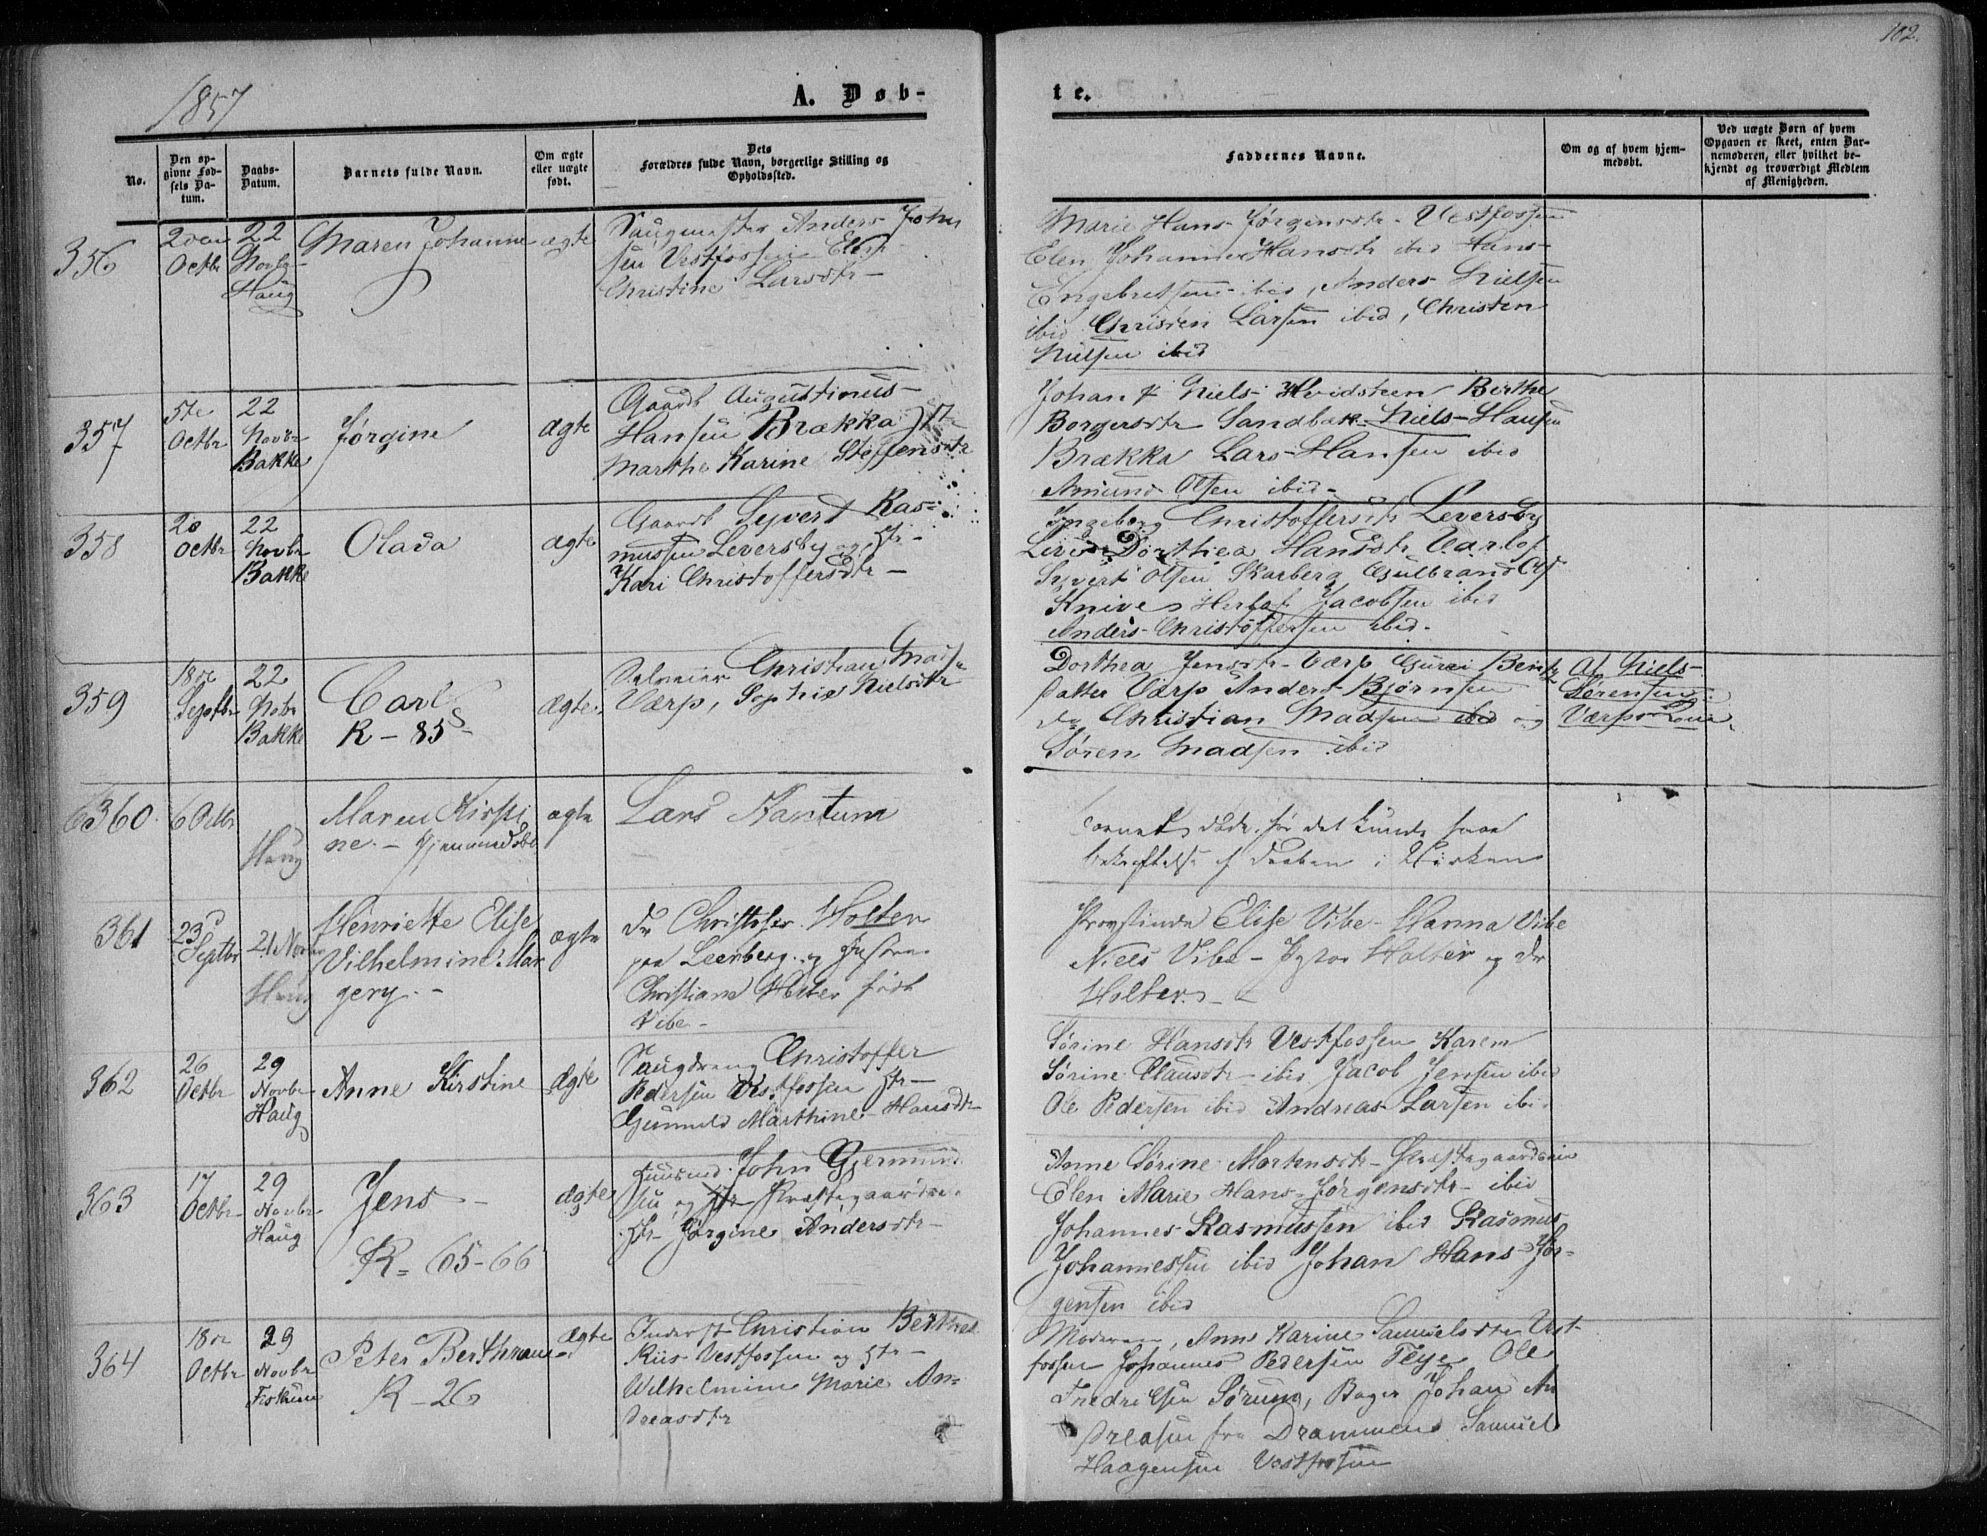 102.
1857
A. Døb-
te.
No.
Den op-
givne Fød-
sels Da-
tum.
Daabs-
Datum.
Barnets fulde Navn.
Om ægte
eller uægte
født.
Dets
Forældres fulde Navn, borgerlige Stilling og
Opholdssted.
Faddernes Navne.
Om og af hvem hjem-
medøbt.
Ved uægte Børn af hvem
Opgaven er skeet, enten Bar-
nemoderen, eller hvilket be-
kjendt og troværdigt Medlem
af Menigheden.
356
Octbr
22
Novbr
Haug
Maren Johanne
ægte
Anders John
sen Vestfossen
Christine Larsdtr
Marie Hans Jørgensdtr Vestfossen
Elen Johanne Hansdtr ibid Hans
Engebretsen ibid, Anders Nielsen
ibid Christen Larsen ibid, Christen
Nielsen ibid
357
5te
Octbr
22
Novbr
Bakke
Jørgine
ægte
Gaardb Augustinus
Hansen Brække
Marthe Karine Steffensdtr
Johan Niels Hvidsteen Birthe
Borgersdtr Sandbak Niels Hansen
Brække Lars Hansen ibid
Amund Olsen ibid
358
20
Octbr
22
Novbr
Bakke
Olava
ægte
Gaardb Syvert Ras-
mussen Leversby og Hstr
Kari Christoffersdtr
Ingeborg Christoffersdtr Leversby
Dorthea Hansdtr Varlo
Syvert Olsen Skarberg Gulbrand
Knive Jacobsen ibid
Anders Christoffersen ibid
359
18de
Septbr
22
Nobr
Bakke
Carl
R - 85
ægte
Christian Mads
Værp, Sophie Nielsdtr
Dorthea Jensdtr Værp Guri Bent
datter Værp Anders Bjørnsen
do Christian Madsen ibid og
Søren Madsen ibid
Af Niels
Sørensen
360
6 Octbr
Haug
Maren Kirsti
ne - Hjemmedøbt
ægte
Lars Kantum
Barnet døde før det kunde faae
bekræftelse af Daaben i Kirken
361
23
Septbr
21 Novbr
Haug
Henriette Elise
Vilhelmine Mar
gery
ægte
Dr Christoffer Holter
paa Leerberg og Hustrue
Christiane Holter født
Vibe
Provstinde Elise Vibe - Hanna Vibe
Niels Vibe - Holter og Dr
Holter
362
26
Octbr
29
Novbr
Haug
Anne Kirstine
ægte
Saugdreng Christoffer
Pedersen Vestfossen Hstr
Gunnild Marthine Hansdtr
Sørine Hansdtr Vestfossen Karen
Sørine Clausdtr ibid Jacob Jensen ibid
Ole Pedersen ibid Andreas Larsen ibid
363
17
Octbr
29
Novbr
Haug
Jens
R - 65-66
ægte
Huusmd John Gjermund
sen og
Hstr Jørgine Andersdtr
Anne Sørine Mortensdtr
Elen Marie Hans Jørgensdtr ibid
Johannes Rasmussen ibid Rasmus
Johannessen ibid Johan Hans Jør-
gensen ibid
364
18de
Octbr
29
Novbr
Fiskum
Peter Berthnæus
R - 26
ægte
Inderst Christian Berthe
Riis Vestfossen og Hstr
Wilhelmine Marie An-
dreasdtr
Moderen, Anne Karine Samuelsdtr Vest-
fossen Johannes Pedersen Teye Ole
Fredriksen Sørum, Bager Johan An
dreasen fra Drammen Samuel
Haagensen Vestfossen